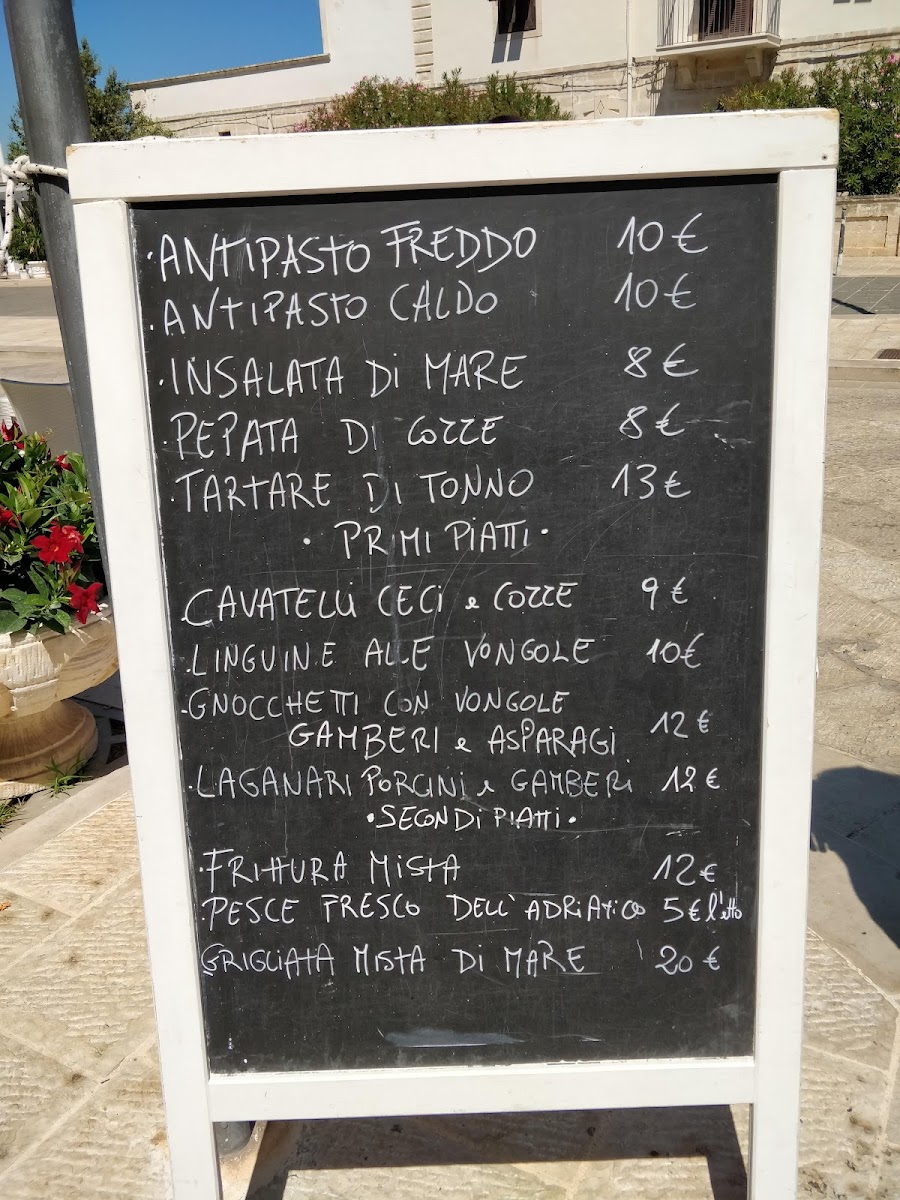 ·ANTIPASTO FREDDO 10 €
·ANTIPASTO CALDO 10 €
·INSALATA Di MARE 8 €
·PEPATA DI COZZE 8 €
·TARTARE DI TONNO 13 €
· PRIMI PIATTI ·
·CAVATELLI CECI e COZZE 9 €
·LINGUINE ALLE VONGOLE 10€
·GNOCCHETTI CON VONGOLE
GAMBERI e ASPARAGI 12 €
·LAGANARI PORCINI e GAMBERI 12 €
·SECONDI PIATTI·
·FRITTURA MISTA 12 €
·PESCE FRESCO DELL'ADRIATICO 5 € l'etto
·GRIGLIATA MISTA DI MARE 20 €